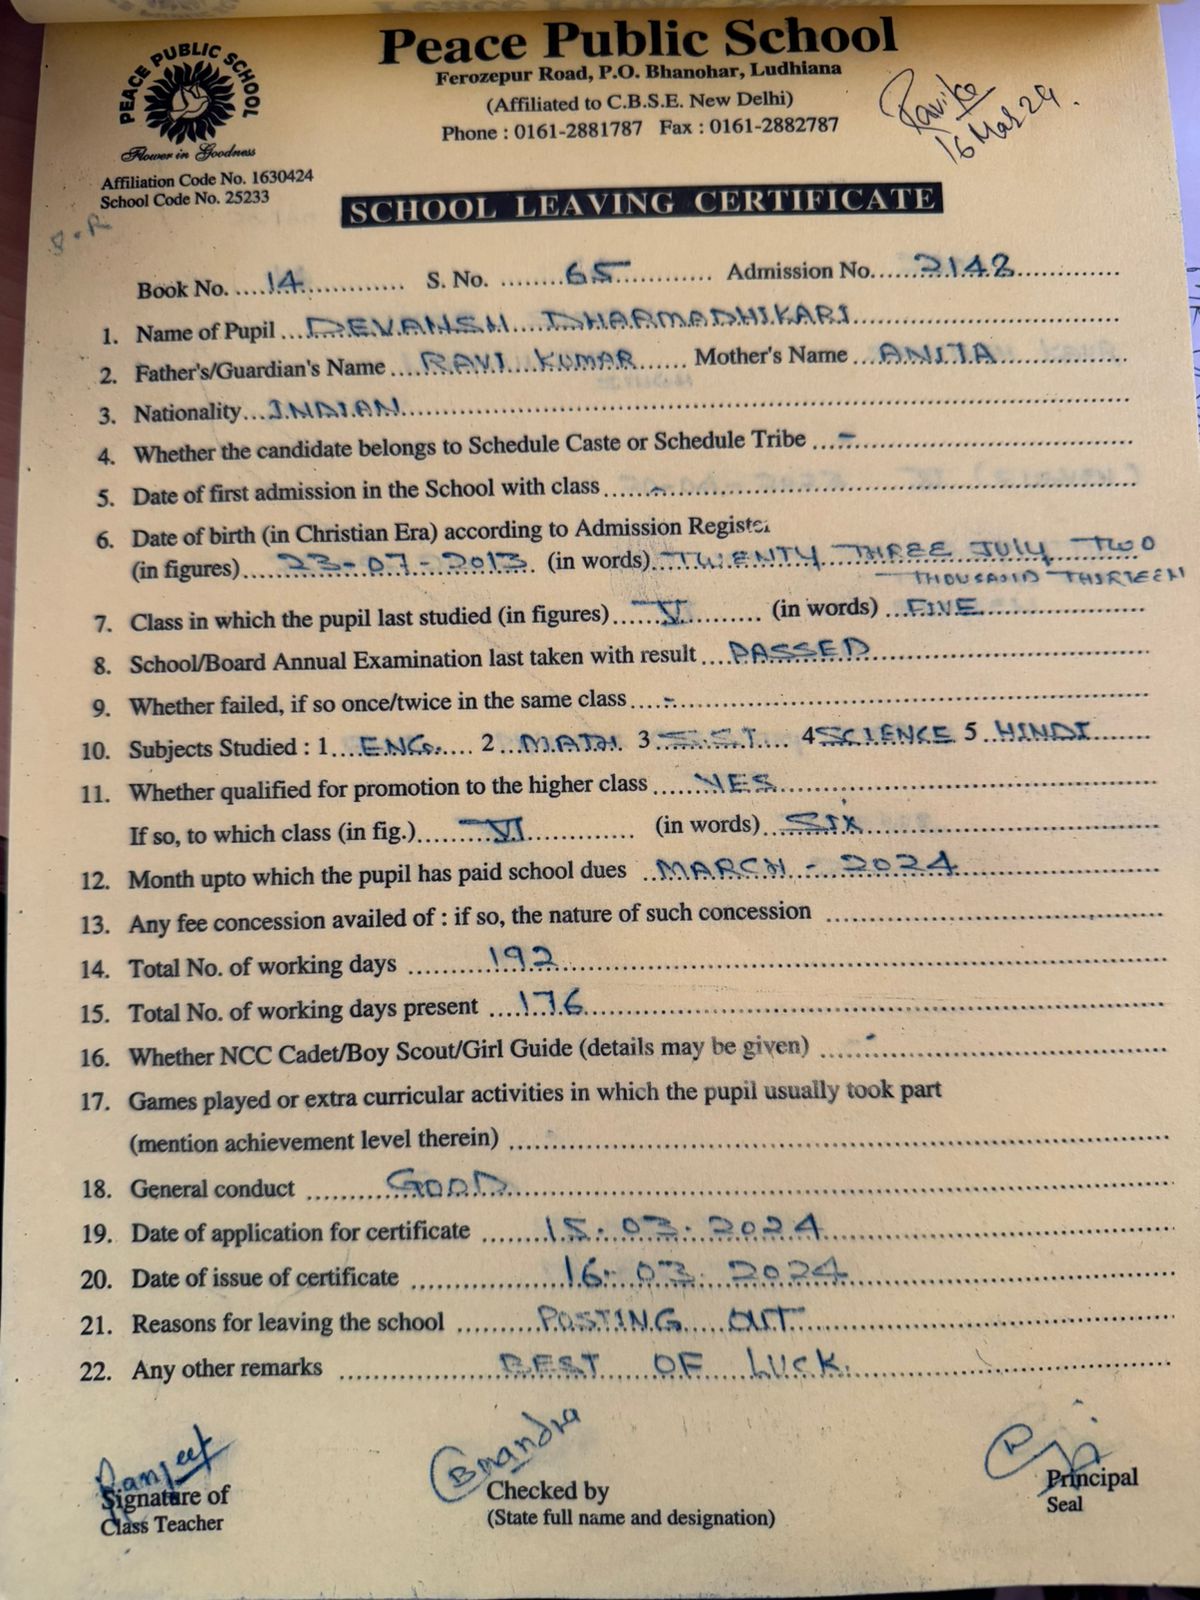 Peace Public School
PEACE PUBLIC SCHOOL
Flower in Goodness
Ferozepur Road, P.O. Bhanohar, Ludhiana
(Affiliated to C.B.S.E. New Delhi)
Phone : 0161-2881787 Fax : 0161-2882787
16 Mar 24.
Affiliation Code No. 1630424
School Code No. 25233
SCHOOL LEAVING CERTIFICATE
Book No. ....14............. S. No. ........65............ Admission No.....2142..............
1. Name of Pupil ...DEVANSH DHARMADHIKARI..............
2. Father's/Guardian's Name ....RAVI KUMAR...... Mother's Name ...ANITA..............
3. Nationality...INDIAN..............
4. Whether the candidate belongs to Schedule Caste or Schedule Tribe ...-..............
5. Date of first admission in the School with class ......-..............
6. Date of birth (in Christian Era) according to Admission Register
(in figures)....23-07-2013. (in words)..TWENTY THREE JULY TWO
THOUSAND THIRTEEN
7. Class in which the pupil last studied (in figures) .....V.......... (in words) ...FIVE..............
8. School/Board Annual Examination last taken with result ....PASSED..............
9. Whether failed, if so once/twice in the same class ....-..............
10. Subjects Studied : 1...ENG..... 2 ..MATH. 3 ..S.S.T.... 4 SCIENCE 5 .HINDI........
11. Whether qualified for promotion to the higher class ......YES..............
If so, to which class (in fig.)......VI.............. (in words) ...SIX..............
12. Month upto which the pupil has paid school dues ..MARCH - 2024..............
13. Any fee concession availed of : if so, the nature of such concession ..............
14. Total No. of working days .........192..............
15. Total No. of working days present ....176..............
16. Whether NCC Cadet/Boy Scout/Girl Guide (details may be given) ......-..............
17. Games played or extra curricular activities in which the pupil usually took part
(mention achievement level therein) ..............
18. General conduct .........GOOD..............
19. Date of application for certificate .......15.03.2024..............
20. Date of issue of certificate ..............16.03.2024..............
21. Reasons for leaving the school .........POSTING OUT..............
22. Any other remarks ..............BEST OF LUCK...............
Ranjeet
Signature of
Class Teacher
Checked by
(State full name and designation)
Principal
Seal